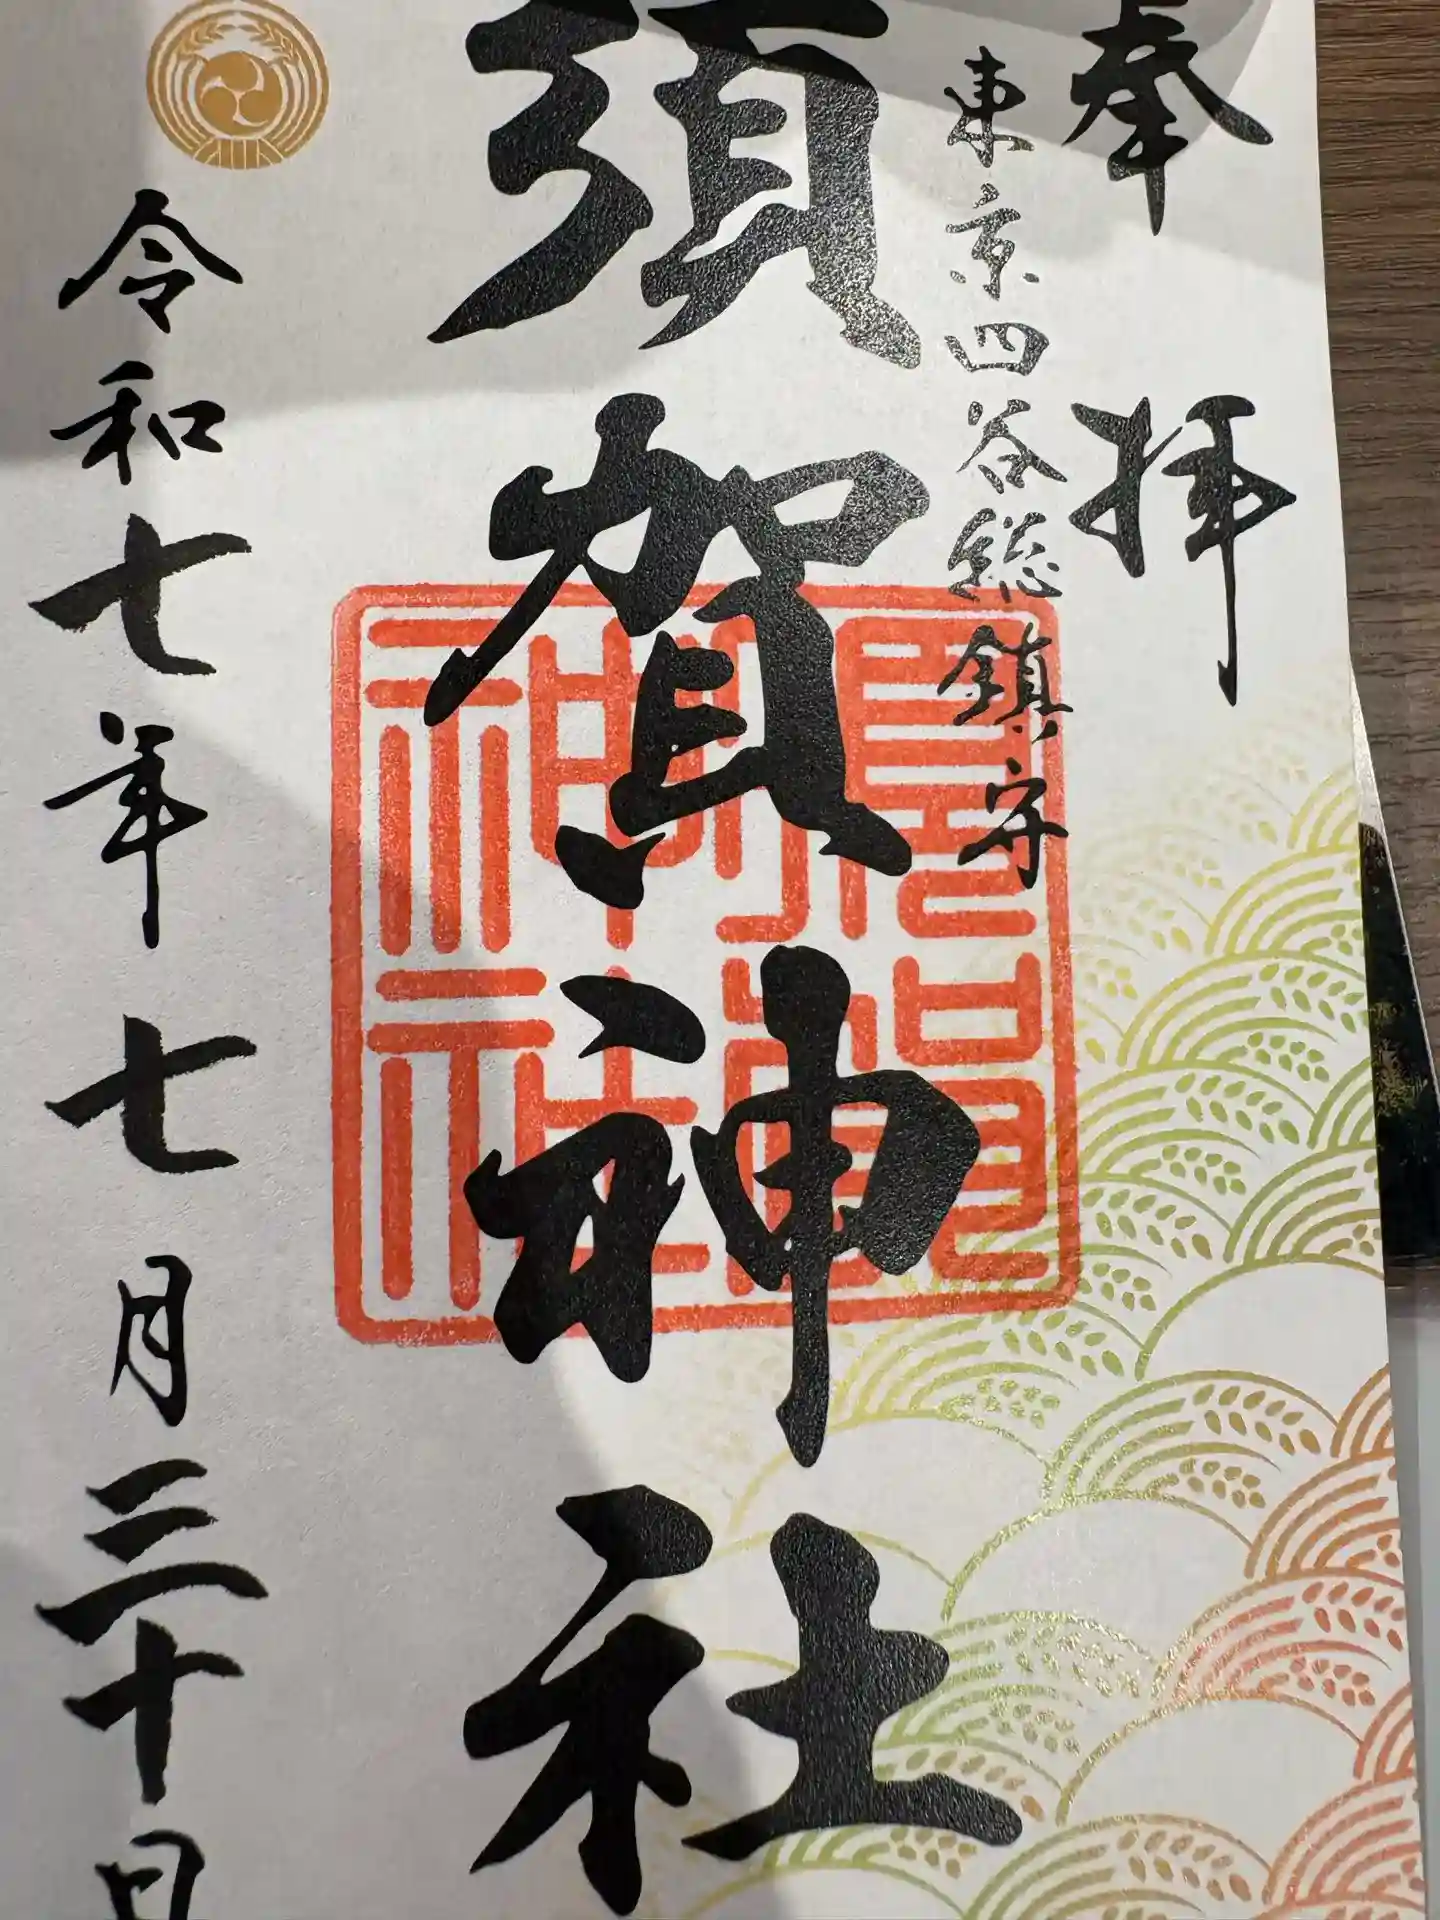 奉拝
東京四谷総鎮守
須賀神社
令和七年七月三十日